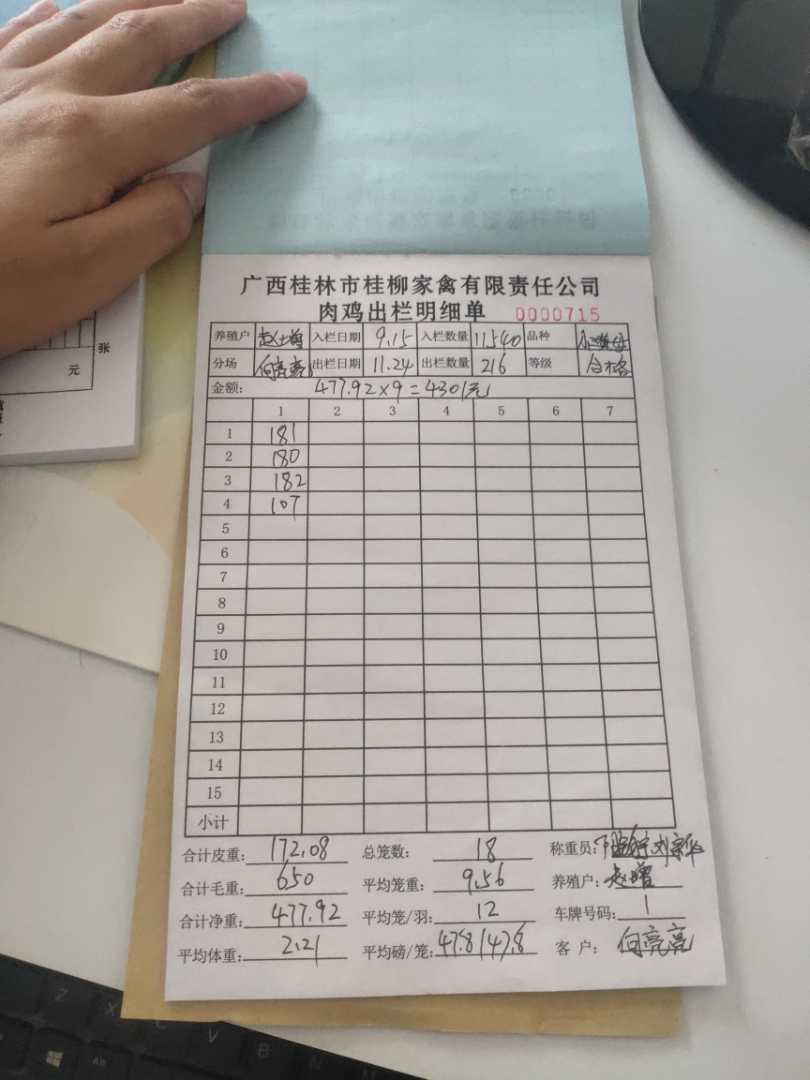 广西桂林市桂柳家禽有限责任公司
肉鸡出栏明细单 0000715
养殖户 赵增 入栏日期 9.15 入栏数量 11540 品种
分场 何亮亮 出栏日期 11.24 出栏数量 216 等级 合格
金额: 477.92×9=4301元
1 2 3 4 5 6 7
1 181
2 180
3 182
4 107
5
6
7
8
9
10
11
12
13
14
15
小计
合计皮重: 172.08 总笼数: 18 称重员:
合计毛重: 650 平均笼重: 9.56 养殖户: 赵增
合计净重: 477.92 平均笼/羽: 12 车牌号码: 1
平均体重: 2.21 平均磅/笼: 47.8/47.8 客 户: 何亮亮
张
元
Z
X
C
V
B
N
M
Alt